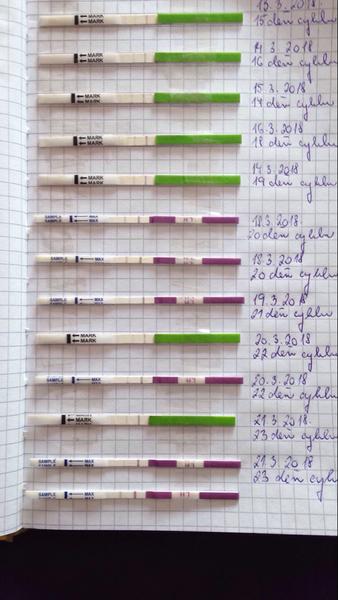 13.3.2018
15 deň cyklu
← MARK
← MARK
14.3.2018
16 deň cyklu
← MARK
← MARK
15.3.2018
17 deň cyklu
← MARK
← MARK
16.3.2018
18 deň cyklu
← MARK
← MARK
17.3.2018
19 deň cyklu
← MARK
← MARK
18.3.2018
20 deň cyklu
SAMPLE ← MAX
18.3.2018
20 deň cyklu
SAMPLE ← MAX
19.3.2018
21 deň cyklu
SAMPLE ← MAX
20.3.2018
22 deň cyklu
← MARK
← MARK
20.3.2018
22 deň cyklu
SAMPLE ← MAX
21.3.2018
23 deň cyklu
← MARK
← MARK
21.3.2018
23 deň cyklu
SAMPLE ← MAX
SAMPLE ← MAX